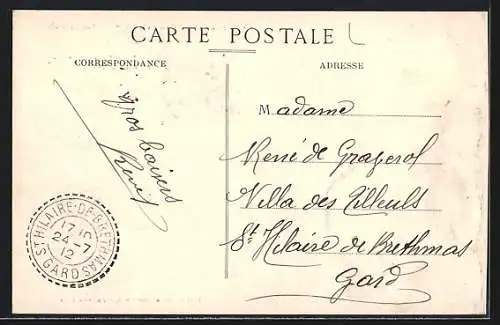 CARTE POSTALE
CORRESPONDANCE
ADRESSE
Gros baisers
René
Madame
René de Grazerol
Villa des Tilleuls
St Hilaire de Brethmas
Gard
ST HILAIRE-DE-BRETHMAS
17 15
24-7
12
GARD